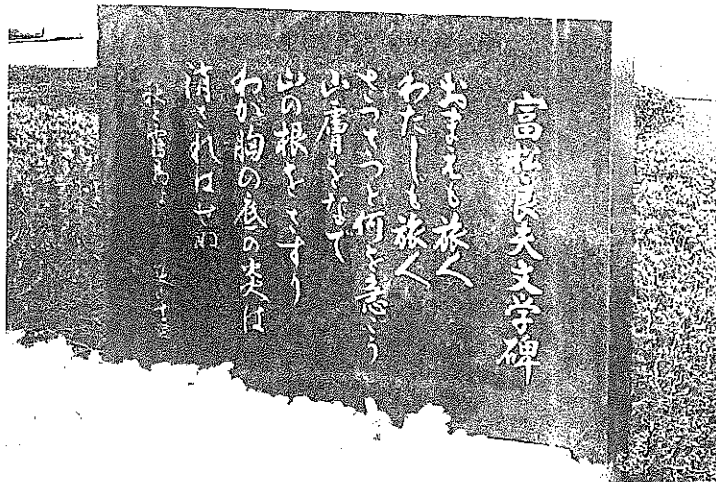 富松良夫文学碑
おまえも旅人
わたしも旅人
さつさつと何を憩こう
山膚をなで
山の根をさすり
わが胸の底の炎は
消されはせぬ